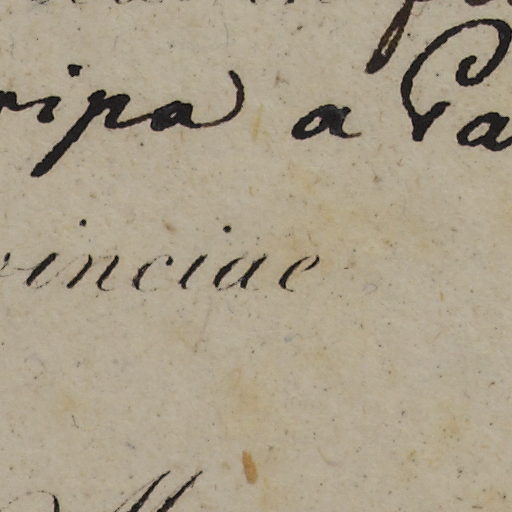 ripa a Pa
vinciae